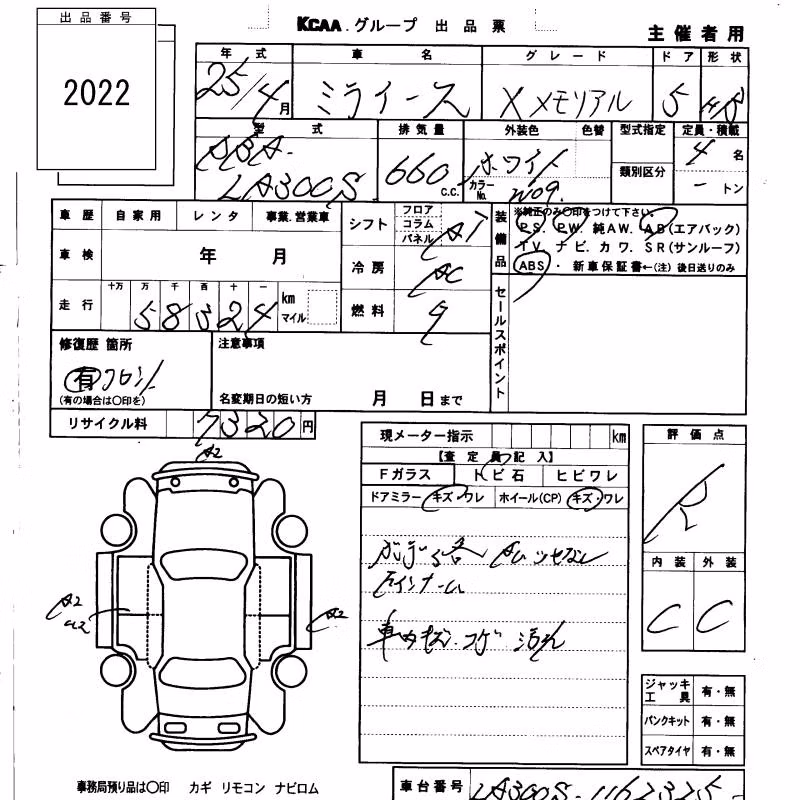 出品番号
2022
KCAA.グループ 出品票
主催者用
年式 車名 グレード ドア 形状
25/4月 ミライース X メモリアル 5 HB
型式 排気量 外装色 色替 型式指定 定員・積載
類別区分
DBA-
LA300S 660 C.C. ホワイト カラーNo. W09 4名
ートン
車歴 自家用 レンタ 事業.営業車
車検 年 月
走行 十万 万 千 百 十 一
58324 km マイル
シフト フロア コラム パネル AT
冷房 AC
燃料
装備品 ※純正のみ○印をつけて下さい。
P.S. P.W. 純AW. AB(エアバック)
TV. ナビ. カワ. SR(サンルーフ)
ABS ・ 新車保証書←(注)後日送りのみ
セールスポイント
修復歴 箇所
有 フロント
(有の場合は○印を)
注意事項
名変期日の短い方 月 日まで
リサイクル料 7320円
現メーター指示 km
【査定員記入】
Fガラス トビ石 ヒビワレ
ドアミラー キズ・ワレ ホイール(CP) キズ・ワレ
評価点
R
内装 外装
C C
A2
A2
A2
ボディ各
車内キズ.コゲ 汚れ
ジャッキ工具 有・無
パンクキット 有・無
スペアタイヤ 有・無
事務局預り品は○印 カギ リモコン ナビロム
車台番号 LA300S-1162325